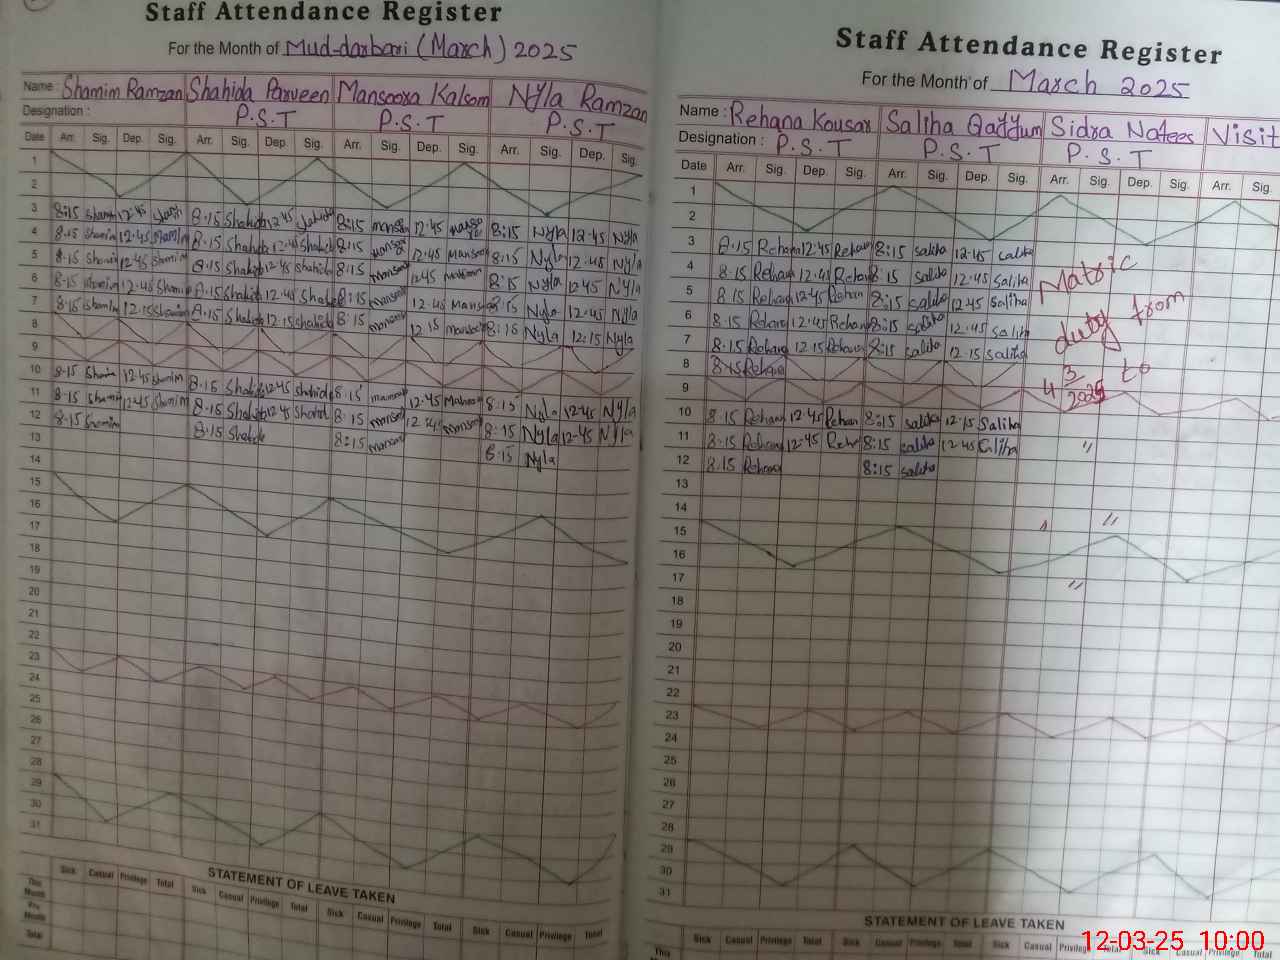 Staff Attendance Register
For the Month of Mud-darbari (March) 2025
Name : Shamim Ramzan Shahida Parveen Mansoora Kalsom Nyla Ramzan
Designation : P.S.T P.S.T P.S.T
Date Arr. Sig. Dep. Sig. Arr. Sig. Dep. Sig. Arr. Sig. Dep. Sig. Arr. Sig. Dep. Sig.
1
2
3 8:15 Shamim 12:45 8:15 Shahida 12:45 Shahida 8:15 12:45 8:15 Nyla 12:45 Nyla
4 8:15 Shamim 12:45 Shamim 8:15 Shahida 12:45 Shahida 8:15 12:45 8:15 Nyla 12:45 Nyla
5 8:15 Shamim 12:45 Shamim 8:15 Shahida 12:45 Shahida 8:15 12:45 8:15 Nyla 12:45 Nyla
6 8:15 Shamim 12:45 Shamim 8:15 Shahida 12:45 Shahida 8:15 12:45 8:15 Nyla 12:45 Nyla
7 8:15 Shamim 12:15 Shamim 8:15 Shahida 12:15 Shahida 8:15 12:15 8:15 Nyla 12:15 Nyla
8
9
10 8:15 12:45 Shamim 8:15 Shahida 12:45 Shahida 8:15 12:45 8:15 Nyla 12:45 Nyla
11 8:15 Shamim 12:45 Shamim 8:15 Shahida 12:45 Shahida 8:15 12:45 8:15 Nyla 12:45 Nyla
12 8:15 Shamim 8:15 Shahida 8:15 8:15 Nyla
13
14
15
16
17
18
19
20
21
22
23
24
25
26
27
28
29
30
31
STATEMENT OF LEAVE TAKEN
Sick Casual Privilege Total Sick Casual Privilege Total Sick Casual Privilege Total Sick Casual Privilege Total
This Month
Pre Month
Total
Staff Attendance Register
For the Month of March 2025
Name : Rehana Kousar Saliha Qayyum Sidra Nafees Visit
Designation : P.S.T P.S.T P.S.T
Date Arr. Sig. Dep. Sig. Arr. Sig. Dep. Sig. Arr. Sig. Dep. Sig. Arr. Sig.
1
2
3 8:15 Rehana 12:45 Rehana 8:15 saliha 12:45 saliha
4 8:15 Rehana 12:45 Rehana 8:15 saliha 12:45 Saliha
5 8:15 Rehana 12:45 Rehana 8:15 saliha 12:45 Saliha
6 8:15 Rehana 12:45 Rehana 8:15 saliha 12:45 Saliha
7 8:15 Rehana 12:15 Rehana 8:15 saliha 12:15 Saliha
8 8:15 Rehana
9
10 8:15 Rehana 12:45 Rehana 8:15 saliha 12:15 Saliha
11 8:15 Rehana 12:45 Rehana 8:15 saliha 12:45 Saliha
12 8:15 Rehana 8:15 saliha
13
14
15
16
17
18
19
20
21
22
23
24
25
26
27
28
29
30
31
Matric
duty from
4 3 2025 to
"
"
"
STATEMENT OF LEAVE TAKEN
Sick Casual Privilege Total Sick Casual Privilege Total Sick Casual Privilege Total Sick Casual Privilege Total
This
12-03-25 10:00